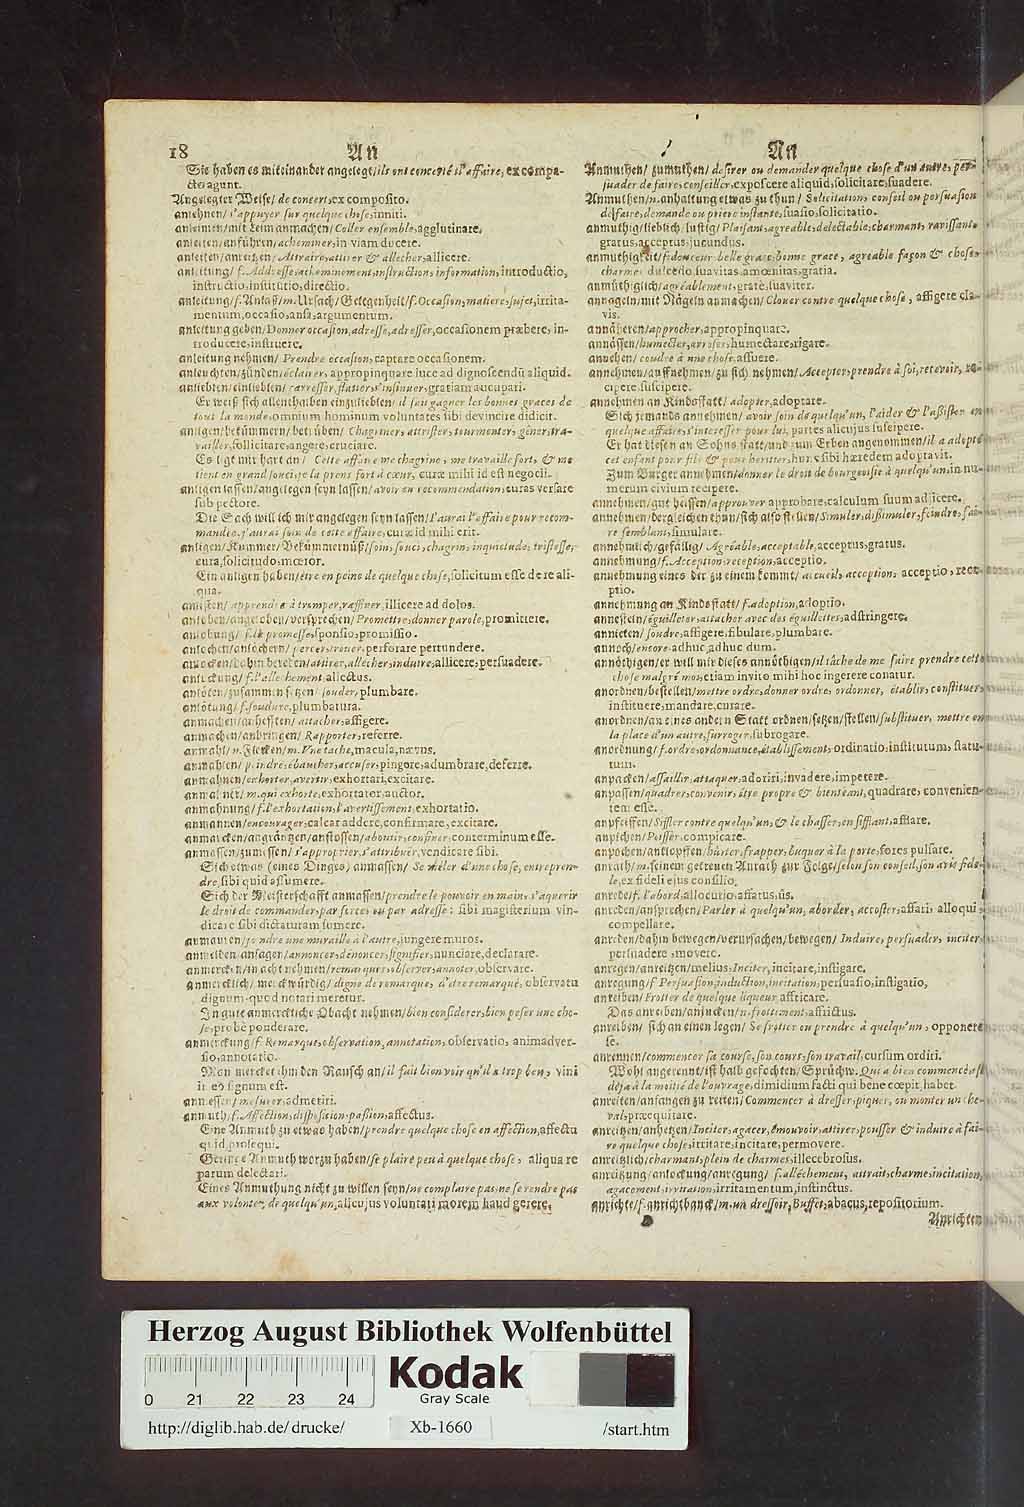 18 An An
Sie haben es miteinander angelegt/ils ont concerté l'affaire, ex compa-
cto agunt.
Angelegter Weise/de concert, ex composito.
anlehnen/s'appuyer sur quelque chose, inniti.
anleimen/mit Leim anmachen/Coller ensemble, agglutinare.
anleiten/anführen/acheminer, in viam ducere.
anleiten/anreitzen/Attraire, attirer & allecher, allicere.
anleitung/f. Addresse, acheminement, instruction, information, introductio,
instructio, institutio, directio.
anleitung/f. Anlaß/m. Ursach/Gelegenheit/f. Occasion, matiere, sujet, irrita-
mentum, occasio, ansa, argumentum.
anleitung geben/Donner occasion, adresse, adresser, occasionem præbere, in-
troducere, instruere.
anleitung nehmen/Prendre occasion, captare occasionem.
anleuchten/zünden/éclairer, appropinquare luce ad dignoscendū aliquid.
anliebten/einliebten/carresser, flatter, s'insinuer, gratiam aucupari.
Er weiß sich allenthalben einzuliebten/il sait gagner les bonnes graces de
tout le monde, omnium hominum voluntates sibi devincire didicit.
anligen/bekümmern/betrüben/Chagriner, attrister, tourmenter, géner, tra-
vailler, sollicitare, angere, cruciare.
Es ligt mir hart an/Cette affaire me chagrine, me travaille fort, & me
tient en grand souci, je la prens fort à cœur, curæ mihi id est negocii.
anligen lassen/angelegen seyn lassen/avoir en recommendation, curas versare
sub pectore.
Die Sach will ich mir angelegen seyn lassen/J'aurai l'affaire pour recom-
mandée, j'aurai soin de cette affaire, curæ id mihi erit.
anligen/Kummer/Bekümmernüß/soin, souci, chagrin, inquietude, tristesse,
cura, solicitudo, mœror.
Ein anligen haben/être en peine de quelque chose, solicitum esse de re ali-
qua.
anlisten/apprendre à tromper, raffiner, illicere ad dolos.
anloben/angeloben/versprechen/Promettre, donner parole, promittere.
anlobung/f. la promesse, sponsio, promissio.
anlochen/anlöchern/percer, trouer, perforare pertundere.
anlocken/dahin bereden/attirer, allécher, induire, allicere, persuadere.
anlockung/f. l'allechement, allectus.
anlöten/zusammen setzen/souder, plumbare.
anlötung/f. soudure, plumbatura.
anmachen/anhefften/attacher, affigere.
anmachen/anbringen/Rapporter, referre.
anmahl/n. Flecken/m. Une tache, macula, nævus.
anmahlen/peindre, ébaucher, accuser, pingere, adumbrare, deferre.
anmahnen/exhorter, avertir, exhortari, excitare.
anmahner/m. qui exhorte, exhortator, auctor.
anmahnung/f. l'exhortation, l'avertissement, exhortatio.
anmannen/encourager, calcar addere, confirmare, excitare.
anmarcken/angräntzen/anstossen/aboutir, confiner, conterminum esse.
anmassen/zumessen/s'approprier, s'attribuër, vendicare sibi.
Sich etwas (eines Dinges) anmassen/Se méler d'une chose, entrepren-
dre, sibi quid assumere.
Sich der Meisterschafft anmassen/prendre le pouvoir en main, s'aquerir
le droit de commander, par force, ou par adresse: sibi magisterium vin-
dicare sibi dictaturam sumere.
anmauren/joindre une muraille à l'autre, jungere muros.
anmelden ansagen/annoncer, dénoncer, signifier, nunciare, declarare.
anmercken/in acht nehmen/remarquer, observer, annoter, observare.
anmercklich/merckwürdig/digne de remarque, d'être remarqué, observatu
dignum, quod notari meretur.
In gute anmerckliche Obacht nehmen/bien considerer, bien peser une cho-
se, probè ponderare.
anmerckung/f. Remarque, observation, annotation, observatio, animadver-
sio, annotatio.
Man mercket ihm den Rausch an/il fait bien voir qu'il a trop beu, vini
in eo signum est.
anmessen/mesurer, admetiri.
anmuth/f. Affection, disposition, passion, affectus.
Eine Anmuth zu etwas haben/prendre quelque chose en affection, affectu
quid prosequi.
Geringe Anmuth worzu haben/se plaire peu à quelque chose, aliqua re
parum delectari.
Eines Anmuthung nicht zu willen seyn/ne complaire pas, ne se rendre pas
aux volontez de quelqu'un, alicujus voluntati morem haud gerere.
Anmuthen/zumuthen/desirer ou demander quelque chose d'un autre, per-
suader de faire, conseiller, exposcere aliquid, solicitare, suadere.
Anmuthen/n. anhaltung etwas zu thun/Solicitation, conseil ou persuasion
de faire, demande ou priere instante, suasio, solicitatio.
anmuthig/lieblich/lustig/Plaisant, agreable, delectable, charmant, ravissant,
gratus, acceptus, jucundus.
anmuthigkeit/f. douceur belle grace, bonne grace, agreable façon & chose,
charme, dulcedo, suavitas, amœnitas, gratia.
anmüthiglich/agréablement, gratè, suaviter.
annageln/mit Nägeln anmachen/Clouer contre quelque chose, affigere cla-
vis.
annäheren/approcher, appropinquare.
annässen/humecter, arroser, humectare, rigare.
annehen/coudre à une chose, assuere.
annehmen/auffnehmen/zu sich nehmen/Accepter, prendre à soi, recevoir, re-
cipere, suscipere.
annehmen an Kindsstatt/adopter, adoptare.
Sich jemands annehmen/avoir soin de quelqu'un, l'aider & l'assister en
quelque affaire, s'interesser pour lui, partes alicujus suscipere.
Er hat diesen an Sohns statt und zum Erben angenommen/il a adopté
cet enfant pour fils & pour heritier, hunc sibi hæredem adoptavit.
Zum Burger annehmen/donner le droit de bourgeoisie à quelqu'un, in nu-
merum civium recipere.
annehmen/gut heissen/approuver approbare, calculum suum adjicere.
annehmen/dergleichen thun/sich also stellen/Simuler, dissimuler, feindre, fai-
re semblant, simulare.
annehmlich/gefällig/Agréable, acceptable, acceptus, gratus.
annehmung/f. Acception, reception, acceptio.
annehmung eines der zu einem kommt/accueil, acception, acceptio, rece-
ptio.
annehmung an Kindsstatt/f. adoption, adoptio.
annesteln/éguilleter, attacher avec des éguillettes, adstringere.
annieten/soudre, affigere, fibulare, plumbare.
annoch/encore adhuc, adhuc dum.
annöthigen/er will mir dieses annöthigen/il tâche de me faire prendre cette
chose malgré moi, etiam invito mihi hoc ingerere conatur.
anordnen/bestellen/mettre ordre, donner ordre, ordonner, établir, constituer,
instituere, mandare, curare.
anordnen/an eines andern Statt ordnen/setzen/stellen/substituer, mettre en
la place d'un autre, surroger, subrogare.
anordnung/f. ordre, ordonnance, établissement, ordinatio, institutum, statu-
tum.
anpacken/assaillir, attaquer, adoriri, invadere, impetere.
anpassen/quadrer, convenir, être propre & bienséant, quadrare, convenien-
tem esse.
anpfeiffen/Siffler contre quelqu'un, & le chasser, en sifflant, afflare.
anpichen/Poisser, compicare.
anpochen/anklopffen/hürter, frapper, buquer à la porte, fores pulsare.
anrath/m. seinem getreuen Anrath zur Folge/selon son conseil, son avis fide-
le, ex fideli ejus consilio.
anrede/f. l'abord, allocutio, affatus, ûs.
anreden/ansprechen/Parler à quelqu'un, aborder, accoster, affari, alloqui,
compellare.
anreden/dahin bewegen/verursachen/bewegen/Induire, persuader, inciter,
persuadere, movere.
anregen/anreitzen/melius, Inciter, incitare, instigare.
anregung/f. Persuasion, induction, incitation, persuasio, instigatio.
anreiben/Frotter de quelque liqueur, affricare.
Das anreiben/anjucken/n. frottement, affrictus.
anreiben/sich an einen legen/Se frotter ou prendre à quelqu'un, opponere
se.
anrennen/commencer sa course, son cours, son travail, cursum ordiri.
Wohl angerennt/ist halb gefochten/Sprüchw. Qui a bien commencé, est
déja à la moitié de l'ouvrage, dimidium facti qui bene cœpit, habet.
anreiten/anfangen zu reiten/Commencer à dresser, piquer, ou monter un che-
val, præequitare.
anreitzen/anhetzen/Inciter, agacer, émouvoir, attirer, pousser & induire à fai-
re quelque chose, irritare, incitare, permovere.
anreitzlich/charmant, plein de charmes, illecebrosus.
anreitzung/anlockung/anregung/f. alléchement, attrait, charme, incitation,
agacement, irritation, irritamentum, instinctus.
anrichte/f. anrichtbanck/m. un dressoir, Buffet, abacus, repositorium.
Anrichten
Herzog August Bibliothek Wolfenbüttel
Kodak
Gray Scale
0 21 22 23 24
http://diglib.hab.de/drucke/ Xb-1660 /start.htm